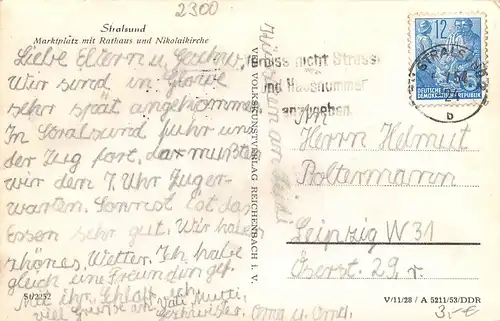 2300
Stralsund
Marktplatz mit Rathaus und Nikolaikirche
Liebe Eltern u. Geschw.
Wir sind in Glowe
sehr spät angekommen
In Stralsund fuhr uns
der Zug fort, da mußten
wir den 7. Uhr Zug er-
warten. Sonnst ist das
Essen sehr gut. Wir habe
schönes Wetter. Ich habe
gleich eine Freundin gef.
Mit ihr schlaf ich
viel grüße an Vati Mutti
Geschwister. Oma u. Oma.
St/2252
VEB VOLKSKUNSTVERLAG REICHENBACH I. V.
nicht Straße
und Hausnummer
angeben
12
DEUTSCHE
DEMOKRATISCHE REPUBLIK
STRALSUND
b
An
Herrn Helmut
Boltermann
Leipzig W 31
29, r.
V/11/28 / A 5211/53/DDR
3,-€